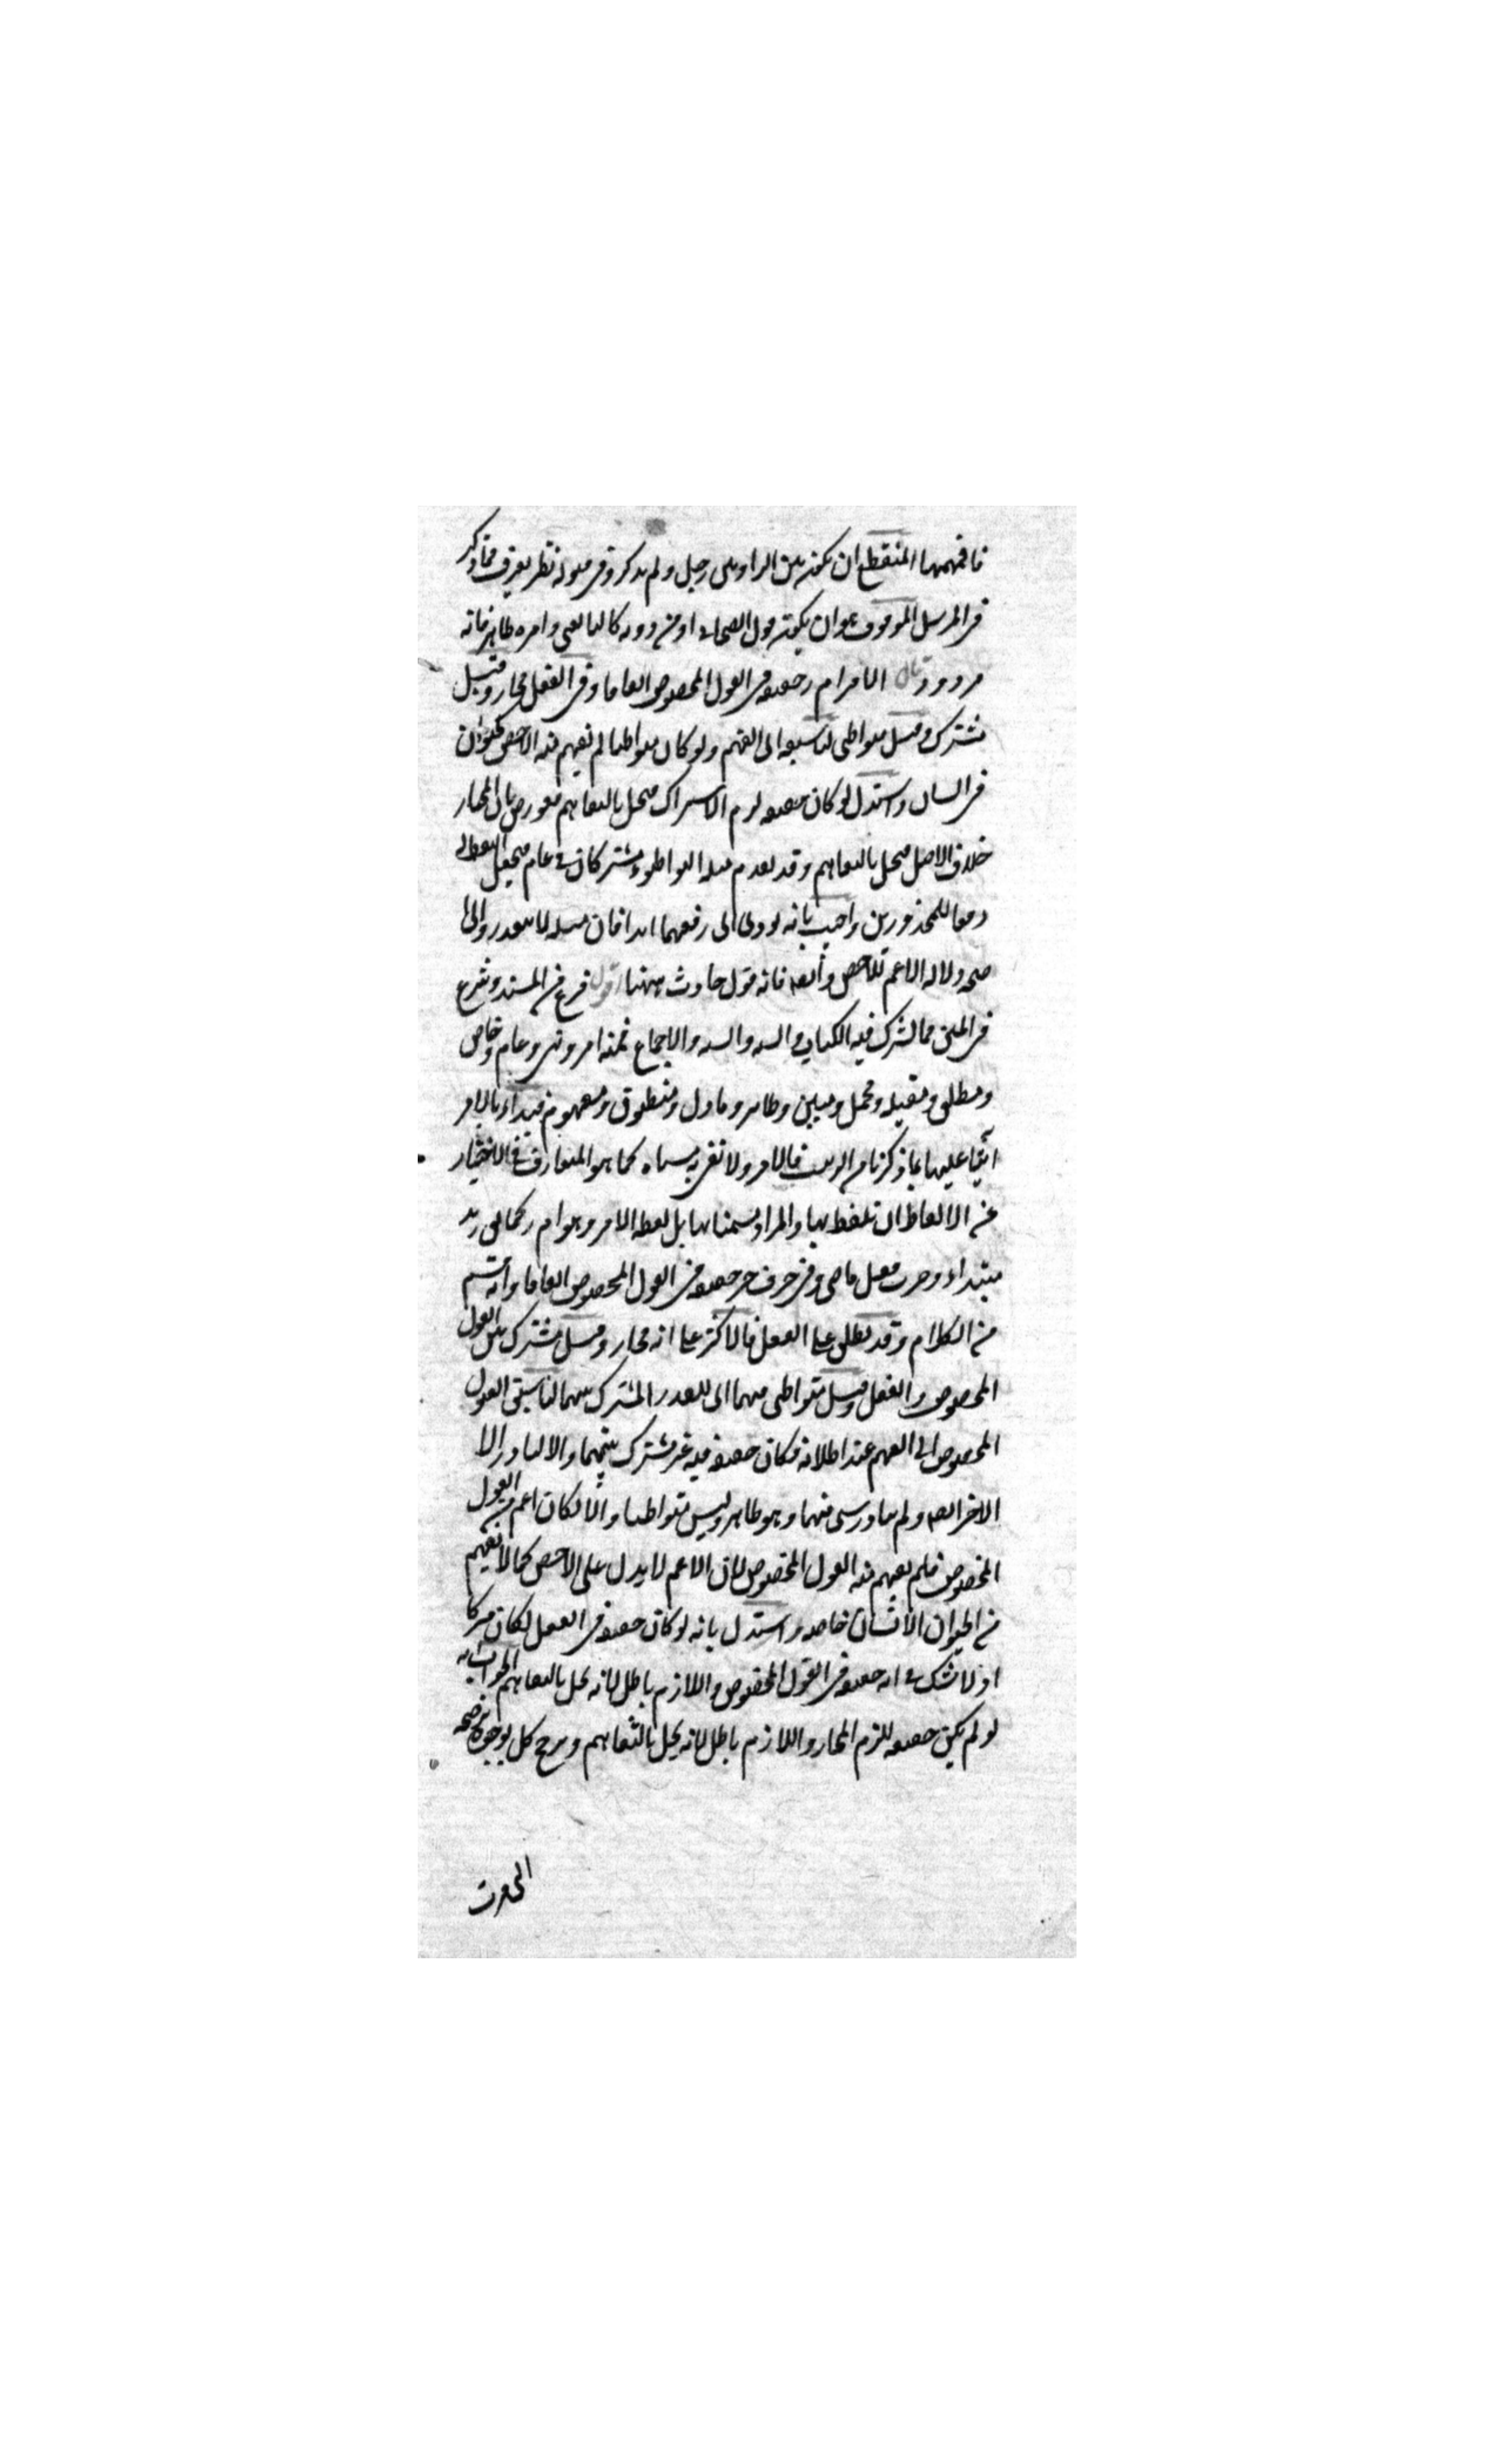 فافهمهما المنقطع ان يكون بين الراويين رجل ولم يذكر وفى قبوله نظر يعرف مما ذكر
فى المرسل الموقوف هو ان يكون قول الصحابى او من دونه كالتابعى وامره ظاهر فانه
مردود قال الامر ا م ر حقيقة فى القول المخصوص اتفاقا وفى الفعل مجاز وقيل
مشترك وقيل متواطئ لنا سبقه الى الفهم ولو كان متواطئا لم يفهم منه الاخص كحيوان
فى انسان واستدل لو كان حقيقة لزم الاشتراك فيخل بالتفاهم فعورض بان المجاز
خلاف الاصل فيخل بالتفاهم وقد تقدم مثله التواطؤ مشتركان فى عام فيجعل اللفظ له
دفعا للمحذورين واجيب بانه يؤدى الى رفعهما ابدا فان مثله لا يتعذر والى
صحة دلالة الاعم للاخص وايضا فانه قول حادث ههنا اقول فرغ من السند وشرع
فى المتن مما يشترك فيه الكتاب والسنة والاجماع فمنه امر ونهى وعام وخاص
ومطلق ومقيد ومجمل ومبين وظاهر ومأول ومنطوق ومفهوم فبدأ بالامر
عليها بما ذكرنا من الترتيب فالامر ولا نعنى به مسماه كما هو المتعارف فى الاخبار
عن الالفاظ ان تلفظ بها والمراد مسمياتها بل لفظة الامر وهو ا م ر كما فى زيد
مبتداء وضرب فعل ماض وفى حرف جر حقيقة فى القول المخصوص اتفاقا وانه قسم
من الكلام وقد يطلق على الفعل فالاكثر على انه مجاز وقيل مشترك بين القول
المخصوص والفعل وقيل متواطئ فيهما اى للقدر المشترك بينهما لنا سبق القول
المخصوص الى الفهم عند اطلاقه فكان حقيقة فيه غير مشترك بينهما والا لتبادر الا
الاخر ايضا ولم يتبادر شئ منهما وهو ظاهر وليس متواطئا والا لكان اعم من القول
المخصوص فلم يفهم منه القول المخصوص لان الاعم لا يدل على الاخص كما لا يفهم
من الحيوان الانسان خاصة واستدل بانه لو كان حقيقة فى الفعل لكان مشتركا
اذ لا شك فى انه حقيقة فى القول المخصوص واللازم باطل لانه يخل بالتفاهم الجواب انه
لو لم يكن حقيقة للزم المجاز واللازم باطل لانه يخل بالتفاهم وترجح كل بوجوه ترجيحه